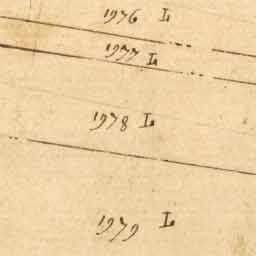 1976 L
1977 L
1978 L
1979 L